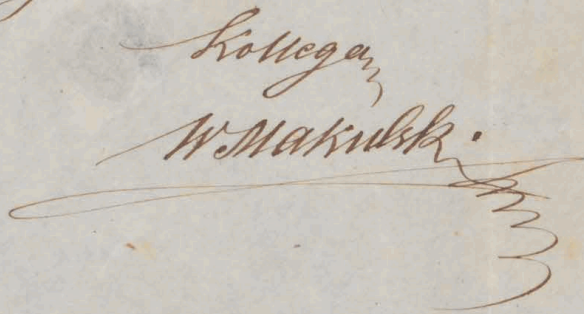 Kollega
W Makulski